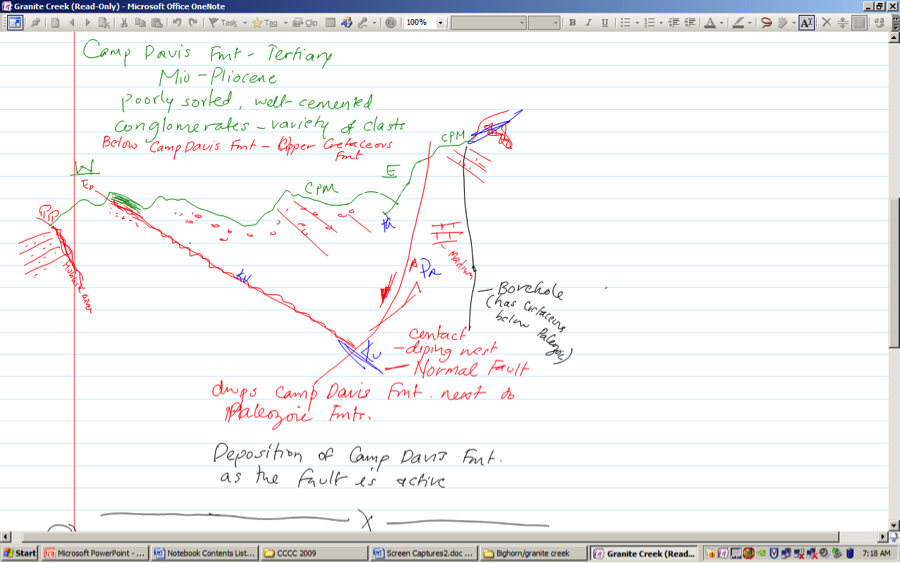 Granite Creek (Read-Only) - Microsoft Office OneNote
Task
Tag
Clip
100%
B I U
Camp Davis Fmt - Tertiary
Mio - Pliocene
poorly sorted, well-cemented
conglomerates - variety of clasts
Below Camp Davis Fmt - Upper Cretaceous
Fmt
W
E
CPM
CPM
Hoback River
Madison
Borehole
(has Cretaceous
below Paleozoic)
contact
- diping west
- Normal Fault
drops Camp Davis Fmt. next to
Paleozoic Fmts.
Deposition of Camp Davis Fmt.
as the fault is active
X
Start
Microsoft PowerPoint - ...
Notebook Contents List...
CCCC 2009
Screen Captures2.doc ...
Bighorn/granite creek
Granite Creek (Read...
7:18 AM